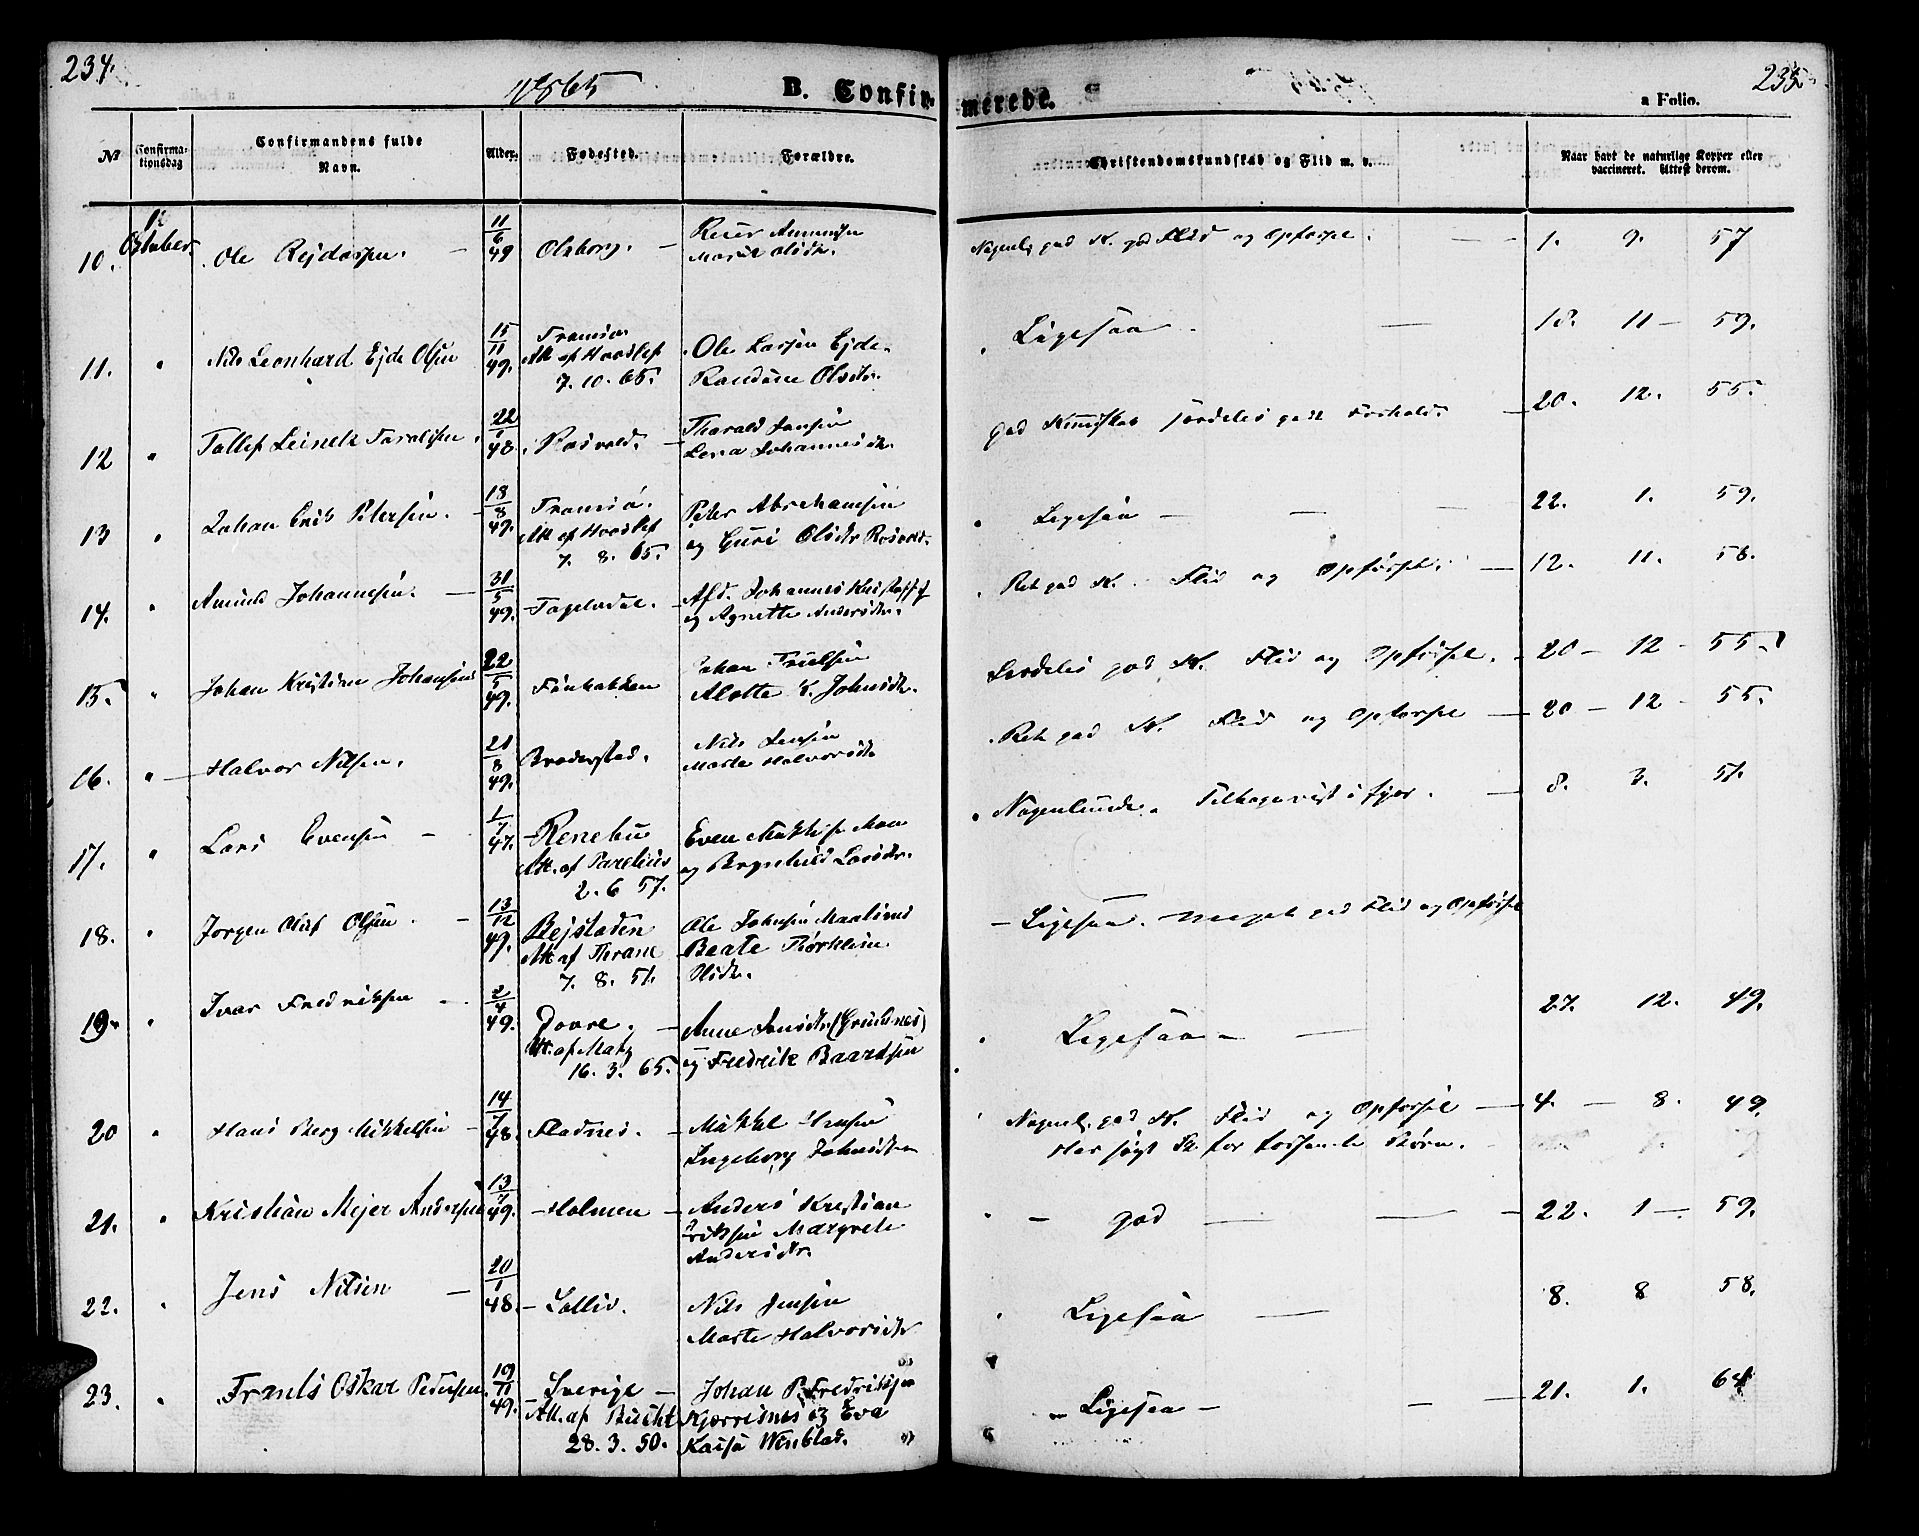 234.
1865
B. Confir-
merede.
235
a Folio.
№
Confirma-
tionsdag
Confirmandens fulde
Navn.
Alder.
Fødested.
Forældre.
Christendomskundskab og Flid m. v.
Naar havt de naturlige Kopper eller
vaccineret. Attest derom.
10. Oktober. Ole Rejdarsen. — 11/6 49 Olsborg. —
Marit Olsdtr.
god K. god Flid og Opførsel. — — 1. 9. 57
11. " Nils Leonhard Ejde Olsen 15/11 49. Tromsø. Ole Larsen Ejde.
Att af Hvoslef
7. 10. 65.
Olsdtr.
Ligesaa — 18. 11 — 59.
12 " 22/1 48. Rosvold. —
Lena Johannesdtr.
god Kundskab særdeles godt Forhold. — 20. 12. 55.
13 " Johan Erik Petersen. — 18/8 49. Tromsø. Peter Abrahamsen
Att af Hvoslef og Guri Olsdtr
7. 8. 65.
Ligesaa — — — 22. 1. 59.
14. " Amund Johannesen. — 31/5 49. — Fagelidal. — Afd. Johannes Kristoff
og Agnette Andersdtr.
Ret god K. Flid og Opførsel. — 12. 11. 58.
15. " Johan Kristian Johansen 22/5 49. Fønbakken Johan
K. Johnsdtr.
Særdeles god K. Flid og Opførsel. 20 — 12 — 55.
16. " — Halvor Nilsen. 21/8 49. Broderstad. Nils Jensen
Marte Halvorsdtr
Ret god K. Flid og Opførsel — 20 — 12 — 55.
17. " Lars Evensen — 1/7 47. — Renebu Even Moen
Att. af Parelius og Brynhild Larsdtr.
2. 6 57.
Nogenlunde. Tilbagevist i fjor. — 8. 3. 51.
18. " Jørgen Oluf Olsen. — 13/12 49. Bejstaden Ole Johnsen
Att af Thrane Beate
7. 8. 51. Olsdtr.
— Ligesaa. meget god Flid og Opførsel
19. " Ivar Fredriksen — 2/4 49. Dovre. — Anne Jonsdtr. (Grundnes)
Att. af Matz og Fredrik Baardsen
16. 3. 65.
Ligesaa — — 27. 12. 49.
20 " Hans Berg Mikkelsen — 14/7 48. Fladnes. — Mikkel Hansen
Ingeborg Johnsdtr
Nogenl. god K. Flid og Opførsel — 4. — 8. 49.
Har søgt Sk. for døvstumme Børn.
21. " Kristian Mejer Andersen 13/7 49. — Holmen — Anders Kristian
Eriksen Margrete
Andersdtr.
— god — — — 22. 1 — 59.
22. " Jens Nilsen — 20/1 48. — Sollid. Nils Jensen
Marte Halvorsdtr
Ligesaa — 8. 8 58.
23. " Frants Oskar Pedersen. 19/11 49. — Sverige — Johan P. Fredriksen
Att. af Bucht Kjærresnes og Eva
28. 3. 50. Kaisa Wenblad.
— Ligesaa — — — 21. 1. 64